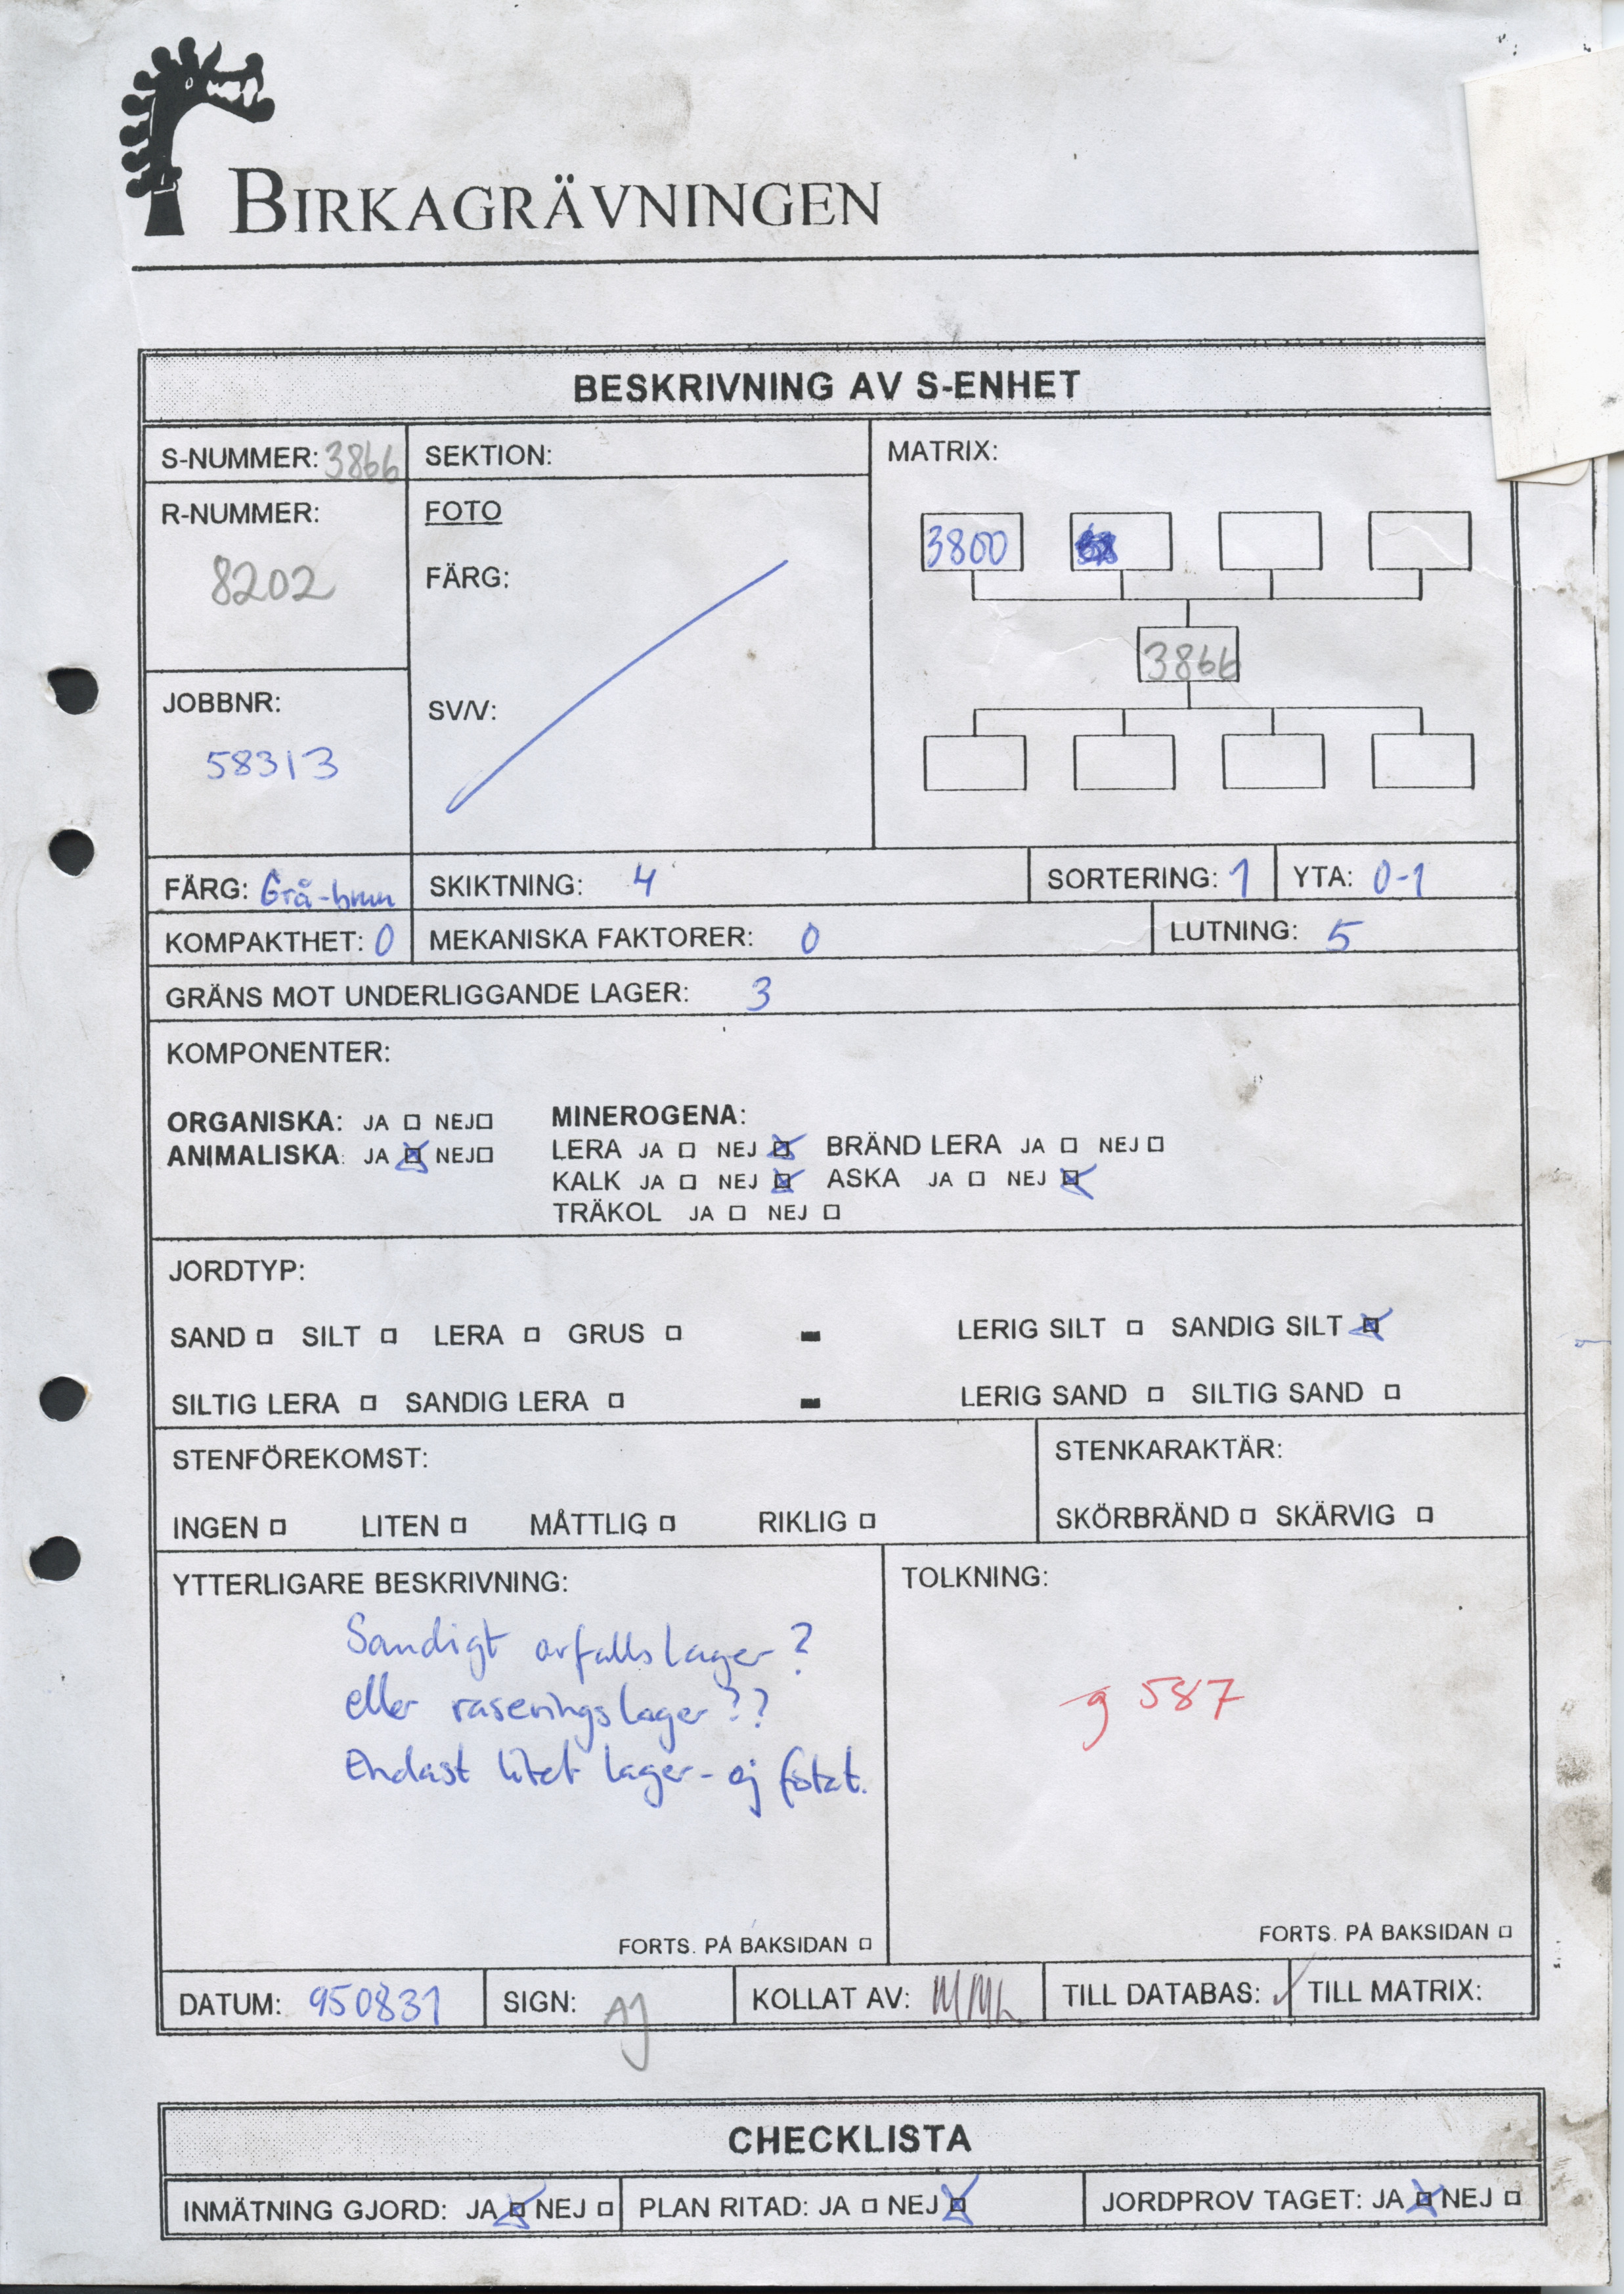 BIRKAGRÄVNINGEN
BESKRIVNING AV S-ENHET
S-NUMMER: 3866
SEKTION:
MATRIX:
R-NUMMER:
8202
FOTO
FÄRG:
SV/V:
3800
3866
JOBBNR:
58313
FÄRG: Grå-brun
SKIKTNING: 4
SORTERING: 1
YTA: 0-1
KOMPAKTHET: 0
MEKANISKA FAKTORER: 0
LUTNING: 5
GRÄNS MOT UNDERLIGGANDE LAGER: 3
KOMPONENTER:
ORGANISKA: JA NEJ
ANIMALISKA: JA NEJ
MINEROGENA:
LERA JA NEJ BRÄND LERA JA NEJ
KALK JA NEJ ASKA JA NEJ
TRÄKOL JA NEJ
JORDTYP:
SAND SILT LERA GRUS - LERIG SILT SANDIG SILT
SILTIG LERA SANDIG LERA - LERIG SAND SILTIG SAND
STENFÖREKOMST:
INGEN LITEN MÅTTLIG RIKLIG
STENKARAKTÄR:
SKÖRBRÄND SKÄRVIG
YTTERLIGARE BESKRIVNING:
Sandigt avfallslager?
eller raseringslager??
Endast litet lager - ej fotat.
FORTS. PÅ BAKSIDAN
TOLKNING:
g 587
FORTS. PÅ BAKSIDAN
DATUM: 950831
SIGN: AJ
KOLLAT AV:
TILL DATABAS: ✓
TILL MATRIX:
CHECKLISTA
INMÄTNING GJORD: JA NEJ
PLAN RITAD: JA NEJ
JORDPROV TAGET: JA NEJ